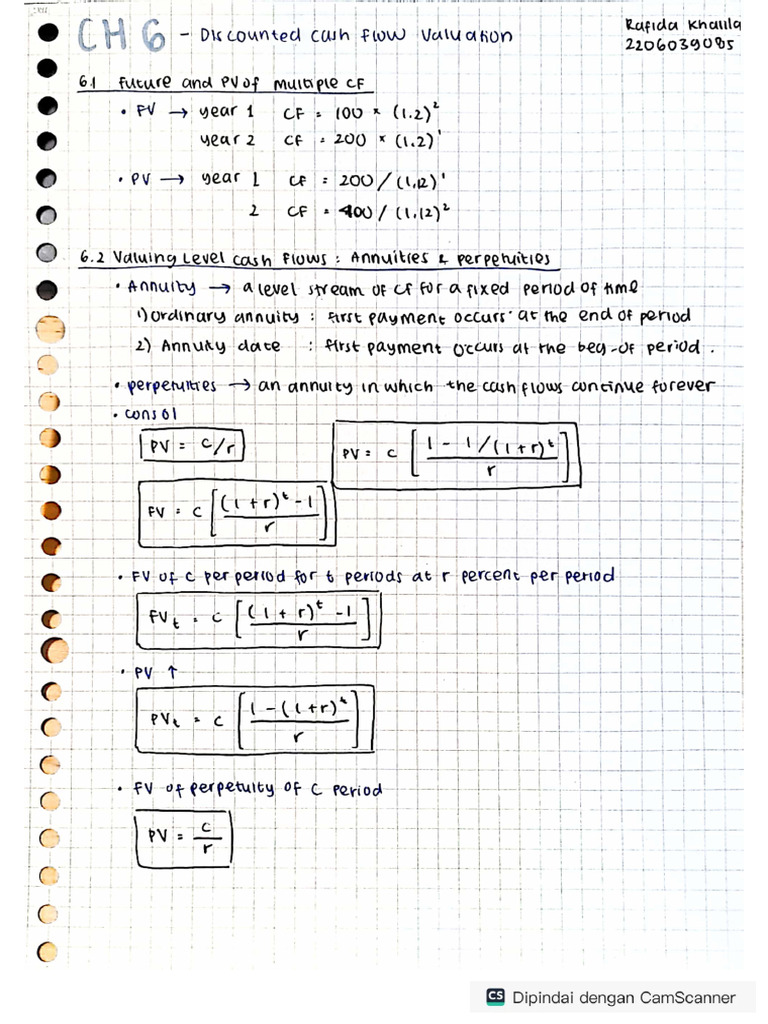 CH 6 - Discounted cash flow valuation
Rafida Khalila
2206039085
6.1 Future and PV of Multiple CF
• FV → year 1 CF = 100 × (1.2)²
year 2 CF = 200 × (1.2)¹
• PV → year 1 CF = 200 / (1,12)¹
2 CF = 400 / (1,12)²
6.2 Valuing Level cash flows : Annuities & perpetuities
• Annuity → a level stream of CF for a fixed period of time
1) ordinary annuity : first payment occurs at the end of period
2) Annuity date : first payment occurs at the beg-of period.
• perpetuities → an annuity in which the cash flows continue forever
• consol
PV = c/r
PV = c [ 1 - 1/(1+r)^t / r ]
FV = c [ (1+r)^t - 1 / r ]
• FV of C per period for t periods at r percent per period
FVt = c [ (1+r)^t - 1 / r ]
• PV ↑
PVt = c [ 1 - (1+r)^t / r ]
• FV of perpetuity of C period
PV = c / r
CS Dipindai dengan CamScanner